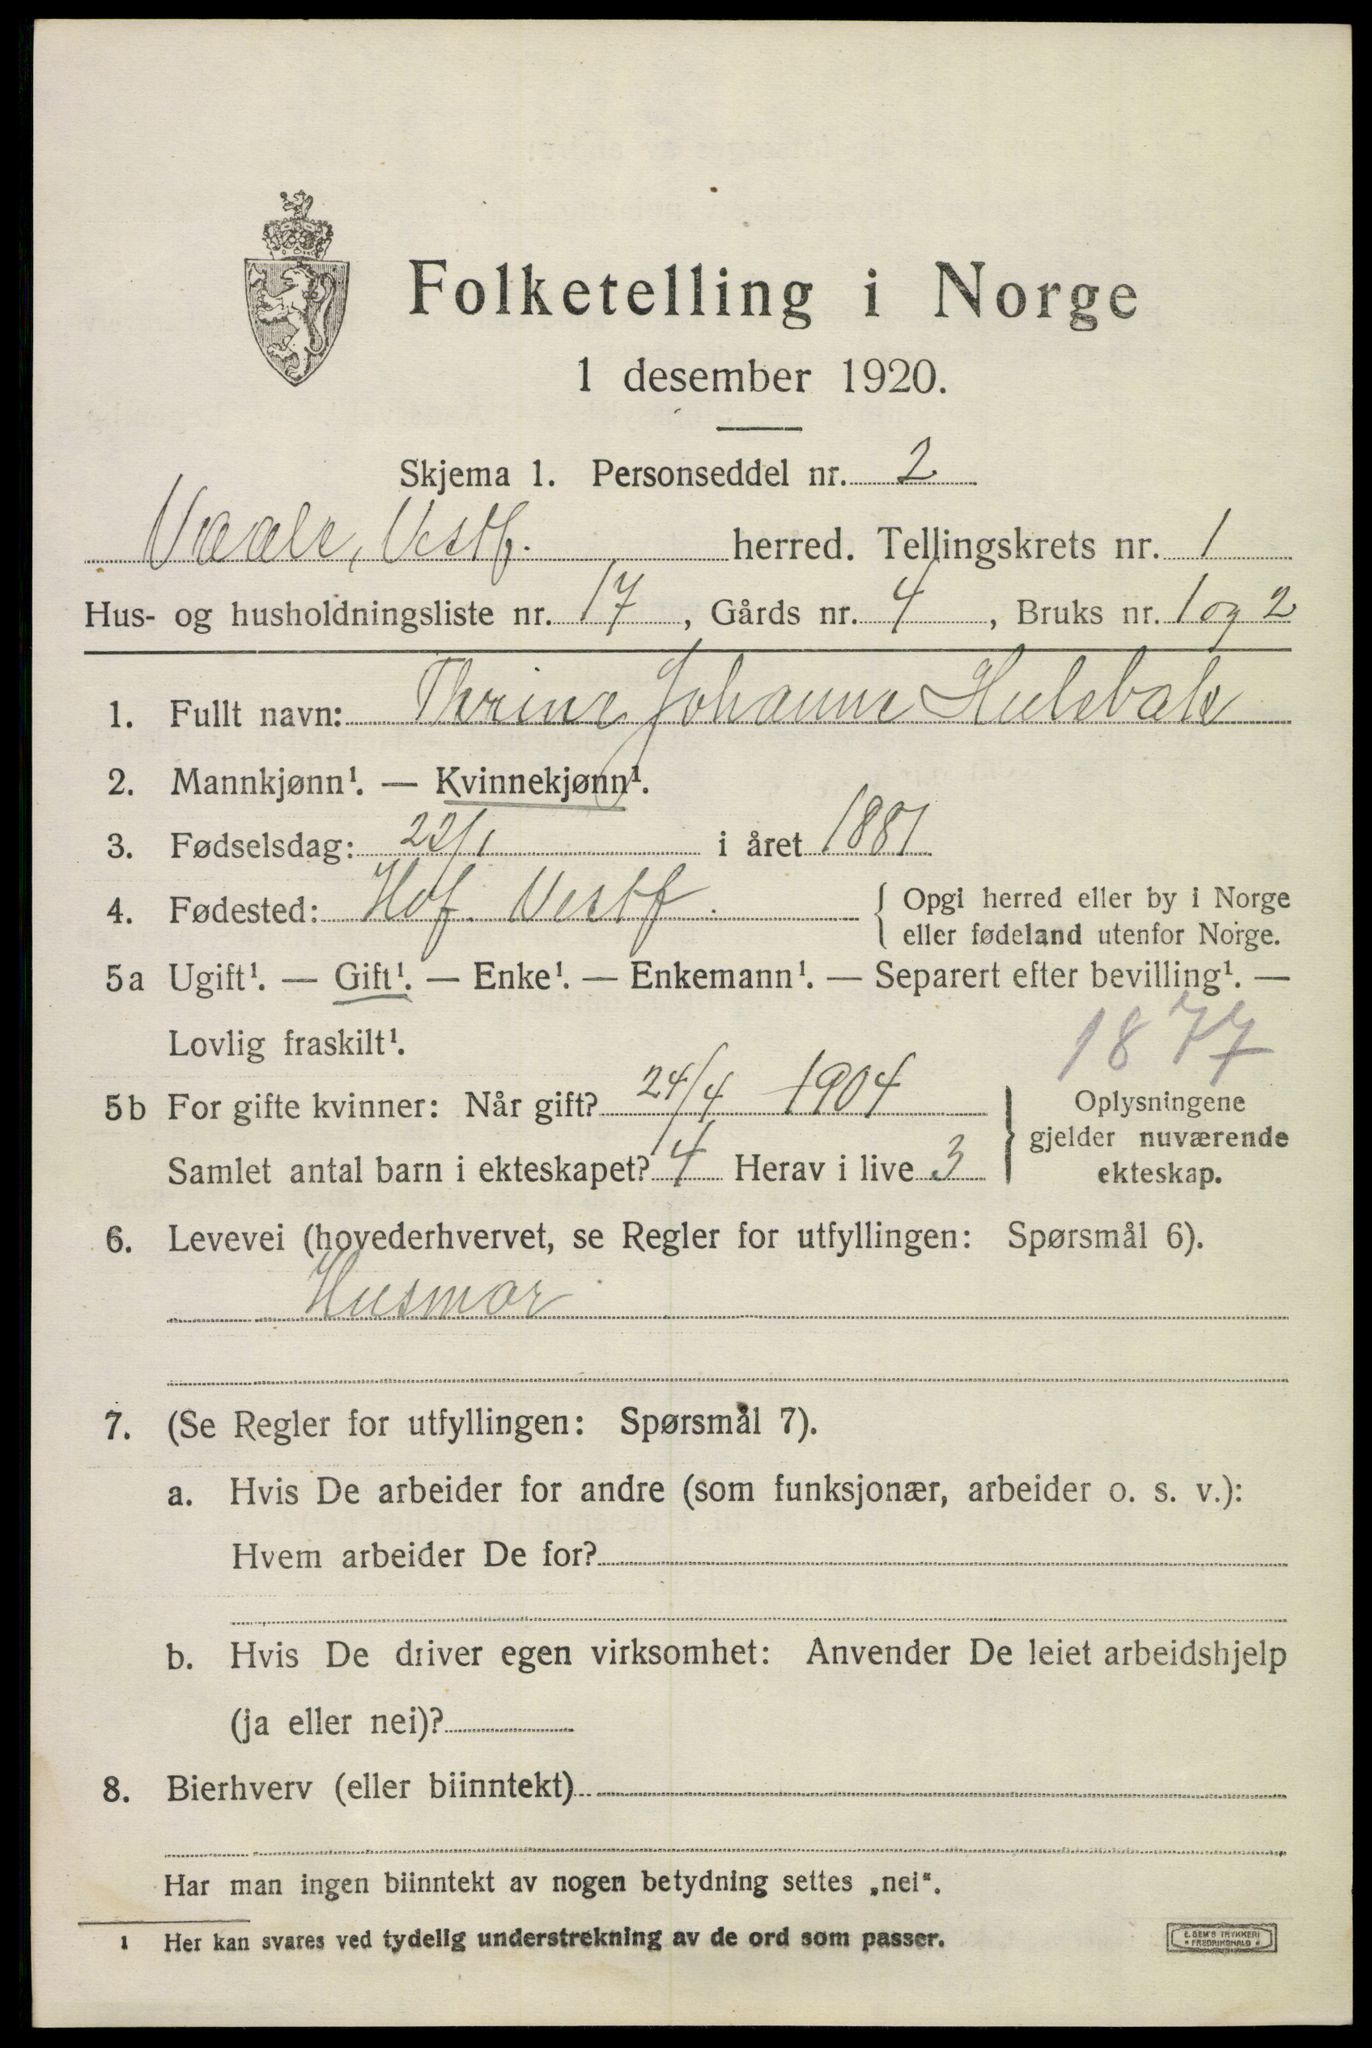 Folketelling i Norge
1 desember 1920.
Skjema 1. Personseddel nr. 2
Vaale, Vestf. herred. Tellingskrets nr. 1
Hus- og husholdningsliste nr. 17, Gårds nr. 4, Bruks nr. 1 og 2
1. Fullt navn: Thrine Johanne Hulebak
2. Mannkjønn¹. — Kvinnekjønn¹.
3. Fødselsdag: 22/1 i året 1881
4. Fødested: Hof. Vestf. { Opgi herred eller by i Norge
eller fødeland utenfor Norge.
5a Ugift¹. — Gift¹. — Enke¹. — Enkemann¹. — Separert efter bevilling¹. —
Lovlig fraskilt¹.
1877
5b For gifte kvinner: Når gift? 24/4 1904
Samlet antal barn i ekteskapet? 4 Herav i live 3
} Oplysningene
gjelder nuværende
ekteskap.
6. Levevei (hovederhvervet, se Regler for utfyllingen: Spørsmål 6).
Husmor
7. (Se Regler for utfyllingen: Spørsmål 7).
a. Hvis De arbeider for andre (som funksjonær, arbeider o. s. v.):
Hvem arbeider De for?
b. Hvis De driver egen virksomhet: Anvender De leiet arbeidshjelp
(ja eller nei)?
8. Bierhverv (eller biinntekt)
Har man ingen biinntekt av nogen betydning settes „nei“.
1 Her kan svares ved tydelig understrekning av de ord som passer.
E. SEM'S TRYKKERI
FREDRIKSHALD